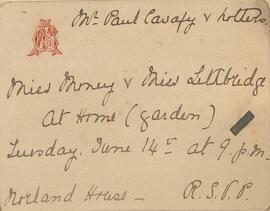 Mr. Paul Cavafy &
Miss Money & Miss Lethbridge
At Home (garden)
Tuesday. June 14th at 9 p.m.
Norland House – R.S.V.P.